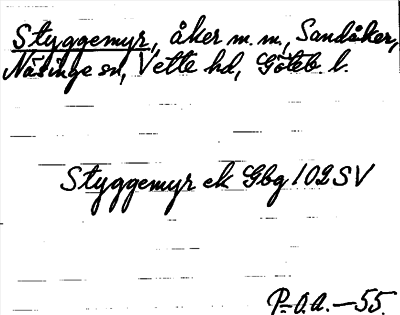 Styggemyr, åker m.m., Sandåker,
Näsinge sn, Vette hd, Göteb. l.
Styggemyr ek Gbg 102 SV
P.-O.A. — 55.